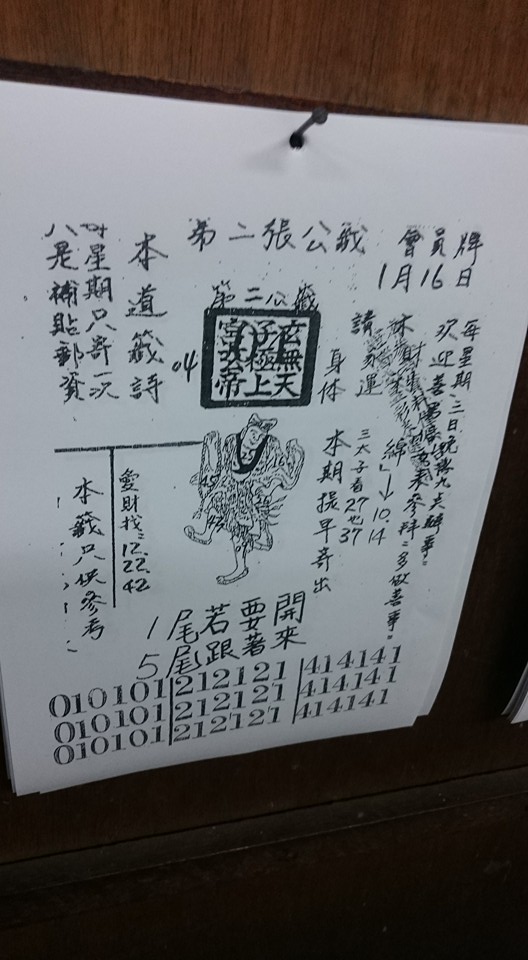 會員牌
1月16日
第二張公籤
每星期三日晚號九天辦事。
歡迎喜
來參拜多做喜事。
綿」→10.14
請
運
身体
三太子看27也37
本期提早寄出
第二公籤
玄無天
子極上
宮玄帝
04
45
42
本道籤詩
每星期只寄一次
八是補貼郵資
愛財找:12.22.42
本籤只供參考
1尾若要開
5尾跟著來
010101 212121 414141
010101 212121 414141
010101 212121 414141